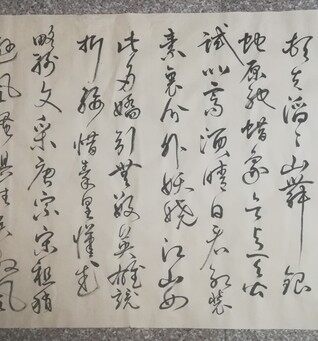 顿失滔滔山舞银
蛇原驰蜡象欲与天公
试比高须晴日看红装
素裹分外妖娆江山如
此多娇引无数英雄竞
折腰惜秦皇汉武
略输文采唐宗宋祖稍
逊风骚